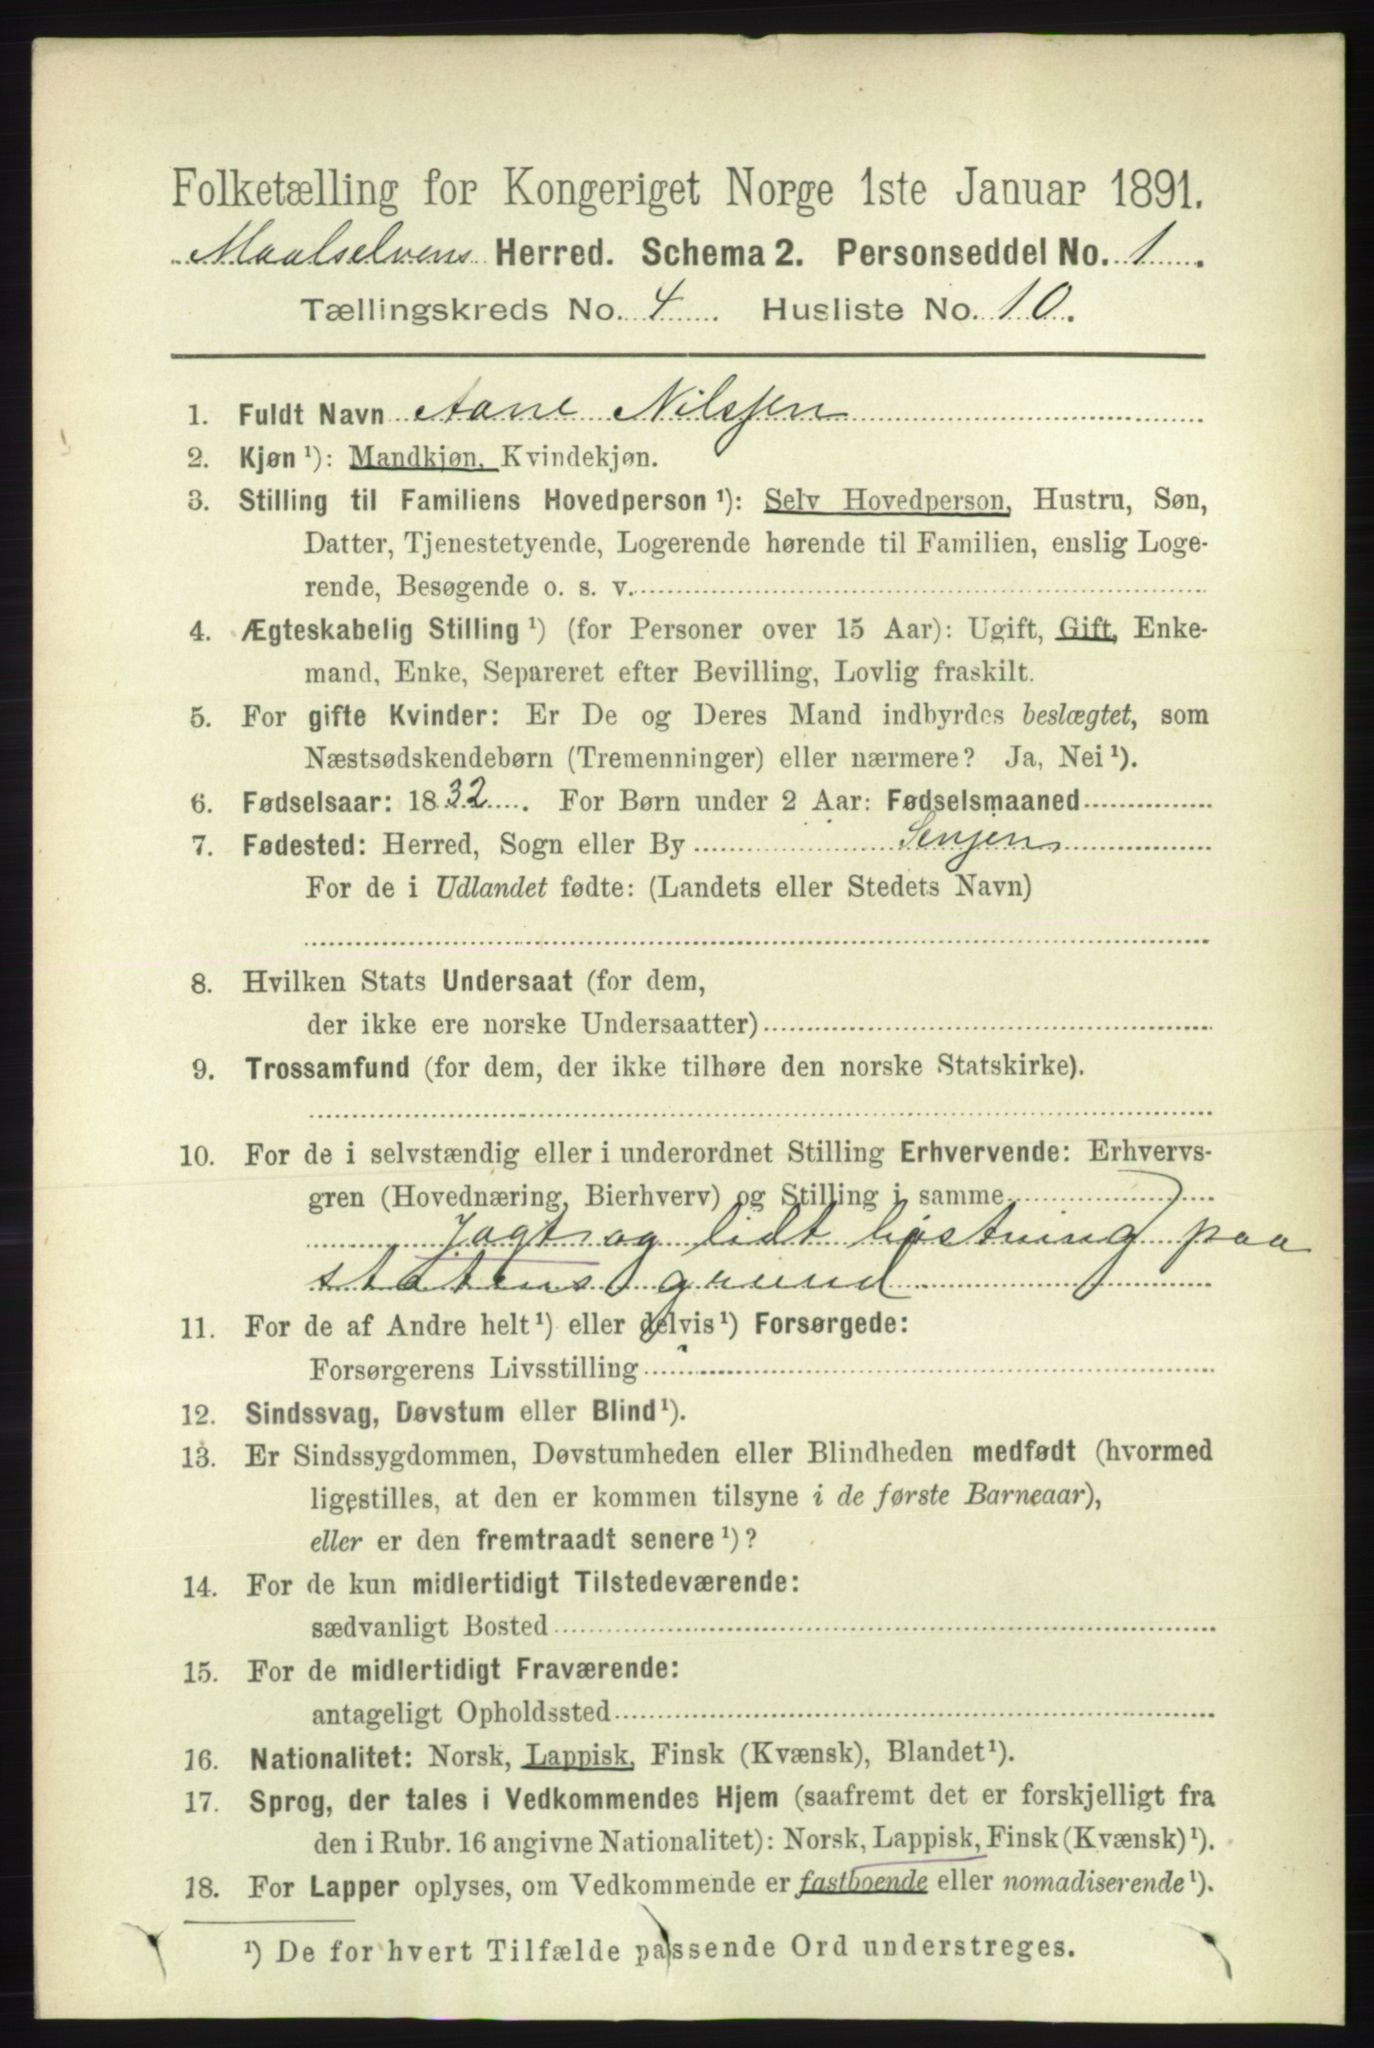 Folketælling for Kongeriget Norge 1ste Januar 1891.
Maalselvens Herred. Schema 2. Personseddel No. 1
Tællingskreds No. 4 Husliste No. 10.
1. Fuldt Navn Aane Nilsjen
2. Kjøn ¹): Mandkjøn, Kvindekjøn.
3. Stilling til Familiens Hovedperson ¹): Selv Hovedperson, Hustru, Søn,
Datter, Tjenestetyende, Logerende hørende til Familien, enslig Loge-
rende, Besøgende o. s. v.
4. Ægteskabelig Stilling ¹) (for Personer over 15 Aar): Ugift, Gift, Enke-
mand, Enke, Separeret efter Bevilling, Lovlig fraskilt.
5. For gifte Kvinder: Er De og Deres Mand indbyrdes beslægtet, som
Næstsødskendebørn (Tremenninger) eller nærmere? Ja, Nei ¹).
6. Fødselsaar: 1832. For Børn under 2 Aar: Fødselsmaaned
7. Fødested: Herred, Sogn eller By Senjen
For de i Udlandet fødte: (Landets eller Stedets Navn)
8. Hvilken Stats Undersaat (for dem,
der ikke ere norske Undersaatter)
9. Trossamfund (for dem, der ikke tilhøre den norske Statskirke).
10. For de i selvstændig eller i underordnet Stilling Erhvervende: Erhvervs-
gren (Hovednæring, Bierhverv) og Stilling i samme
Jagt og lidt høstning paa
statens grund
11. For de af Andre helt ¹) eller delvis ¹) Forsørgede:
Forsørgerens Livsstilling
12. Sindssvag, Døvstum eller Blind ¹).
13. Er Sindssygdommen, Døvstumheden eller Blindheden medfødt (hvormed
ligestilles, at den er kommen tilsyne i de første Barneaar),
eller er den fremtraadt senere ¹)?
14. For de kun midlertidigt Tilstedeværende:
sædvanligt Bosted
15. For de midlertidigt Fraværende:
antageligt Opholdssted
16. Nationalitet: Norsk, Lappisk, Finsk (Kvænsk), Blandet ¹).
17. Sprog, der tales i Vedkommendes Hjem (saafremt det er forskjelligt fra
den i Rubr. 16 angivne Nationalitet): Norsk, Lappisk, Finsk (Kvænsk) ¹).
18. For Lapper oplyses, om Vedkommende er fastboende eller nomadiserende ¹).
¹) De for hvert Tilfælde passende Ord understreges.